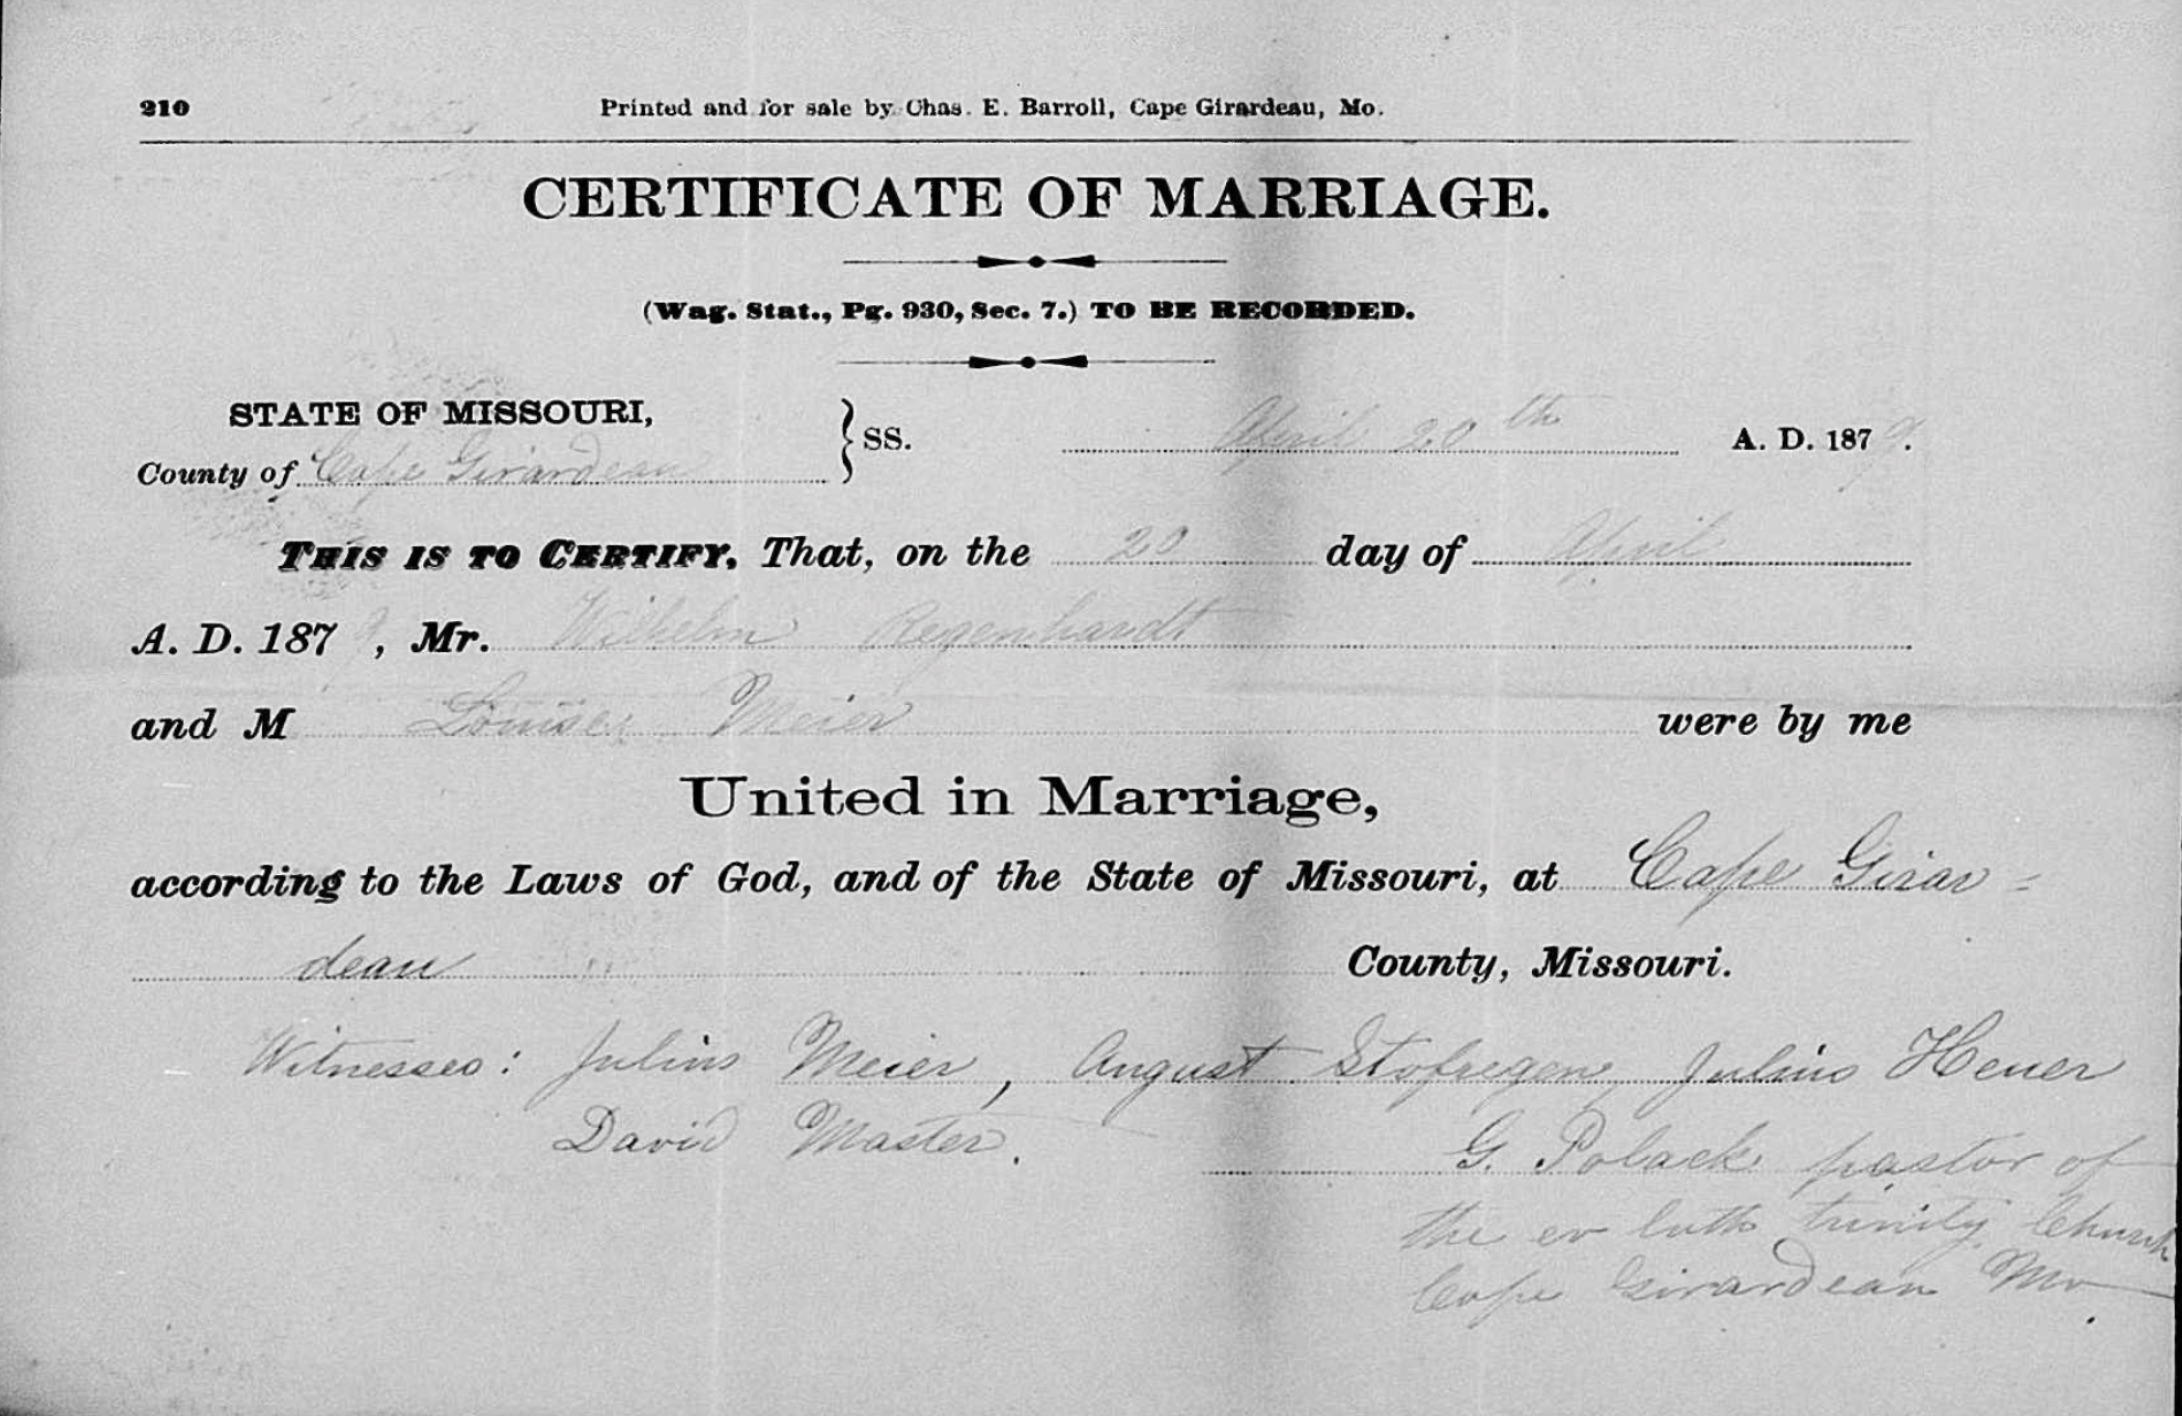 210 Printed and for sale by Chas. E. Barroll, Cape Girardeau, Mo.
CERTIFICATE OF MARRIAGE.
(Wag. Stat., Pg. 930, Sec. 7.) TO BE RECORDED.
STATE OF MISSOURI,
County of Cape Girardeau } SS. April 20th A. D. 1879.
THIS IS TO CERTIFY, That, on the 20 day of April
A. D. 1879, Mr. Wilhelm Regenhardt
and M Louise Meier were by me
United in Marriage,
according to the Laws of God, and of the State of Missouri, at Cape Girar=
deau County, Missouri.
Witnesses: Julius Meier, August Stofregen, Julius Heuer
David Master.
G. Polack pastor of
the ev luth trinity Church
Cape Girardeau Mo.